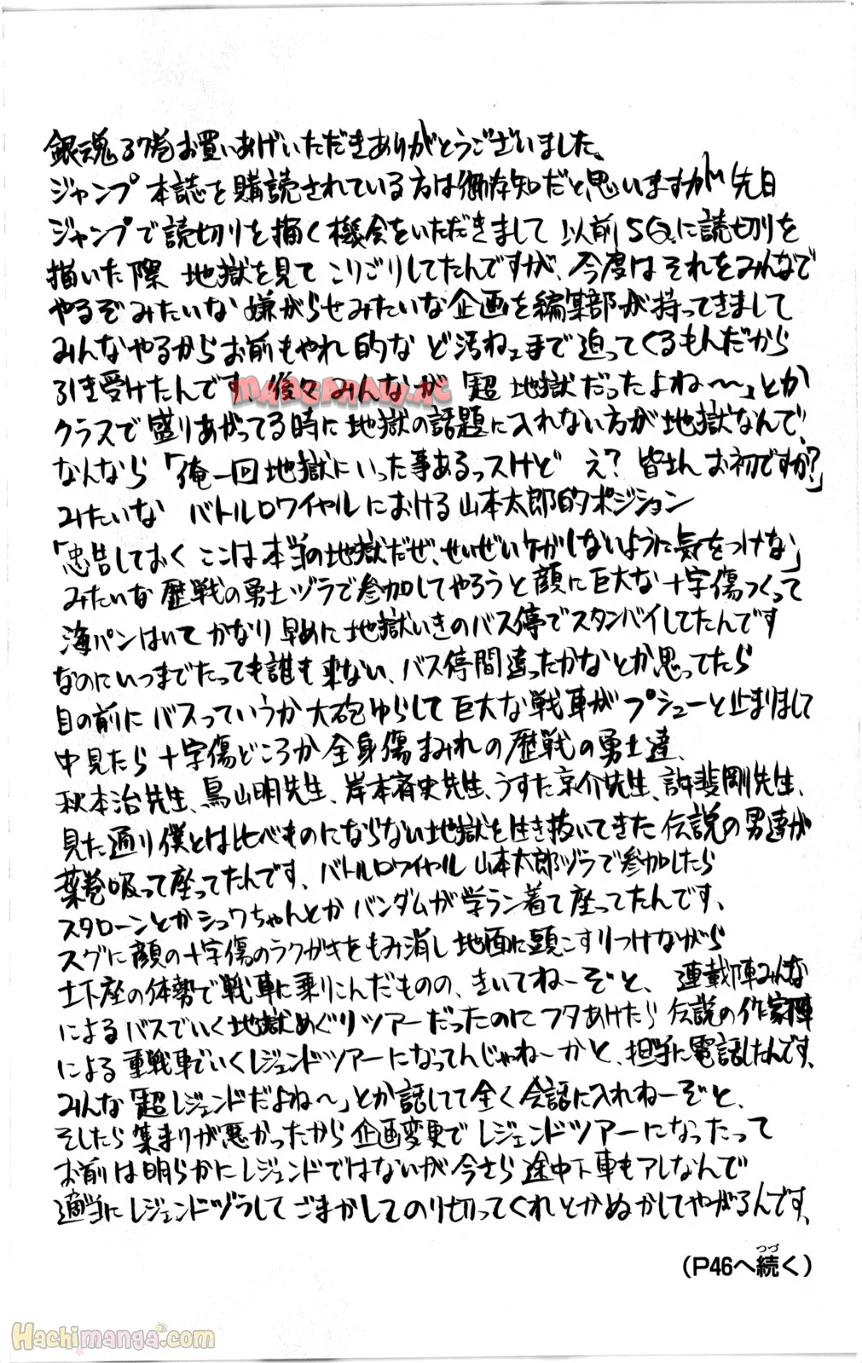 銀魂37巻お買いあげいただきありがとうございました。
ジャンプ本誌を購読されている方は御存知だと思いますが 先日
ジャンプで読切りを描く機会をいただきまして 以前SQに読切りを
描いた際 地獄を見て こりごりしてたんですが、今度はそれをみんなで
やるぞみたいな 嫌がらせみたいな企画を編集部が持ってきまして
みんなやるからお前もやれ的な ど汚ねェまで迫ってくるもんだから
引き受けたんです 後々みんなが「超 地獄だったよね〜〜」とか
クラスで盛りあがってる時に地獄の話題に入れない方が地獄なんで、
なんなら「俺一回地獄にいった事あるっスけど え? 皆さんお初ですか?」
みたいな バトルロワイヤルにおける山本太郎的ポジション
「忠告しておく ここは本当の地獄だぜ、せいぜいケガしないように気をつけな」
みたいな歴戦の勇士ヅラで参加してやろうと顔に巨大な十字傷つくって
海パンはいて かなり早めに地獄いきのバス停でスタンバイしてたんです
なのにいつまでたっても誰も来ない、バス停間違ったかなとか思ってたら
目の前に バスっていうか大砲ゆらして巨大な戦車がプシューと止まりまして
中見たら十字傷どころか全身傷まみれの歴戦の勇士達、
秋本治先生、鳥山明先生、岸本斉史先生、うすた京介先生、許斐剛先生、
見た通り僕とは比べものにならない地獄を生き抜いてきた伝説の男達が
葉巻吸って座ってたんです、バトルロワイヤル 山本太郎ヅラで参加したら
スタローンとかシュワちゃんとか バンダムが学ラン着て座ってたんです、
スグに顔の十字傷のラクガキをもみ消し 地面に頭こすりつけながら
土下座の体勢で戦車に乗りこんだものの、きいてねーぞと、連載陣みんな
によるバスでいく地獄めぐりツアーだったのに フタあけたら伝説の作家陣
による重戦車でいくレジェンドツアーになってんじゃねーかと、担当に電話したんです、
みんな「超レジェンドだよね〜」とか話してて全く会話に入れねーぞと、
そしたら集まりが悪かったから企画変更でレジェンドツアーになったって
お前は明らかにレジェンドではないが今さら途中下車もアレなんで
適当にレジェンドヅラして ごまかしてのり切ってくれとかぬかしてやがるんです、
(P46へ続く)
つづ
Hachimanga.com